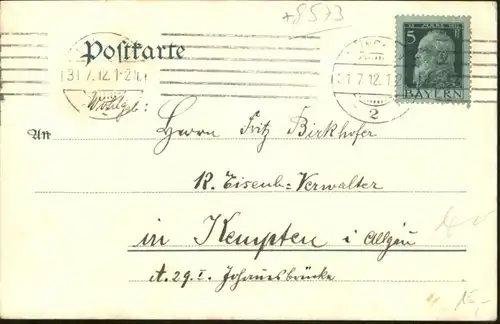 +8573
Postkarte
5
BAYERN
31.7.12.1-2
31.7.12.1-2
2
Wohlgeb:
An Herrn Fritz Birkhofer
K. Eisenb=Verwalter
in Kempten i Allgäu
A. 29. I. Johannesbrücke
15,-